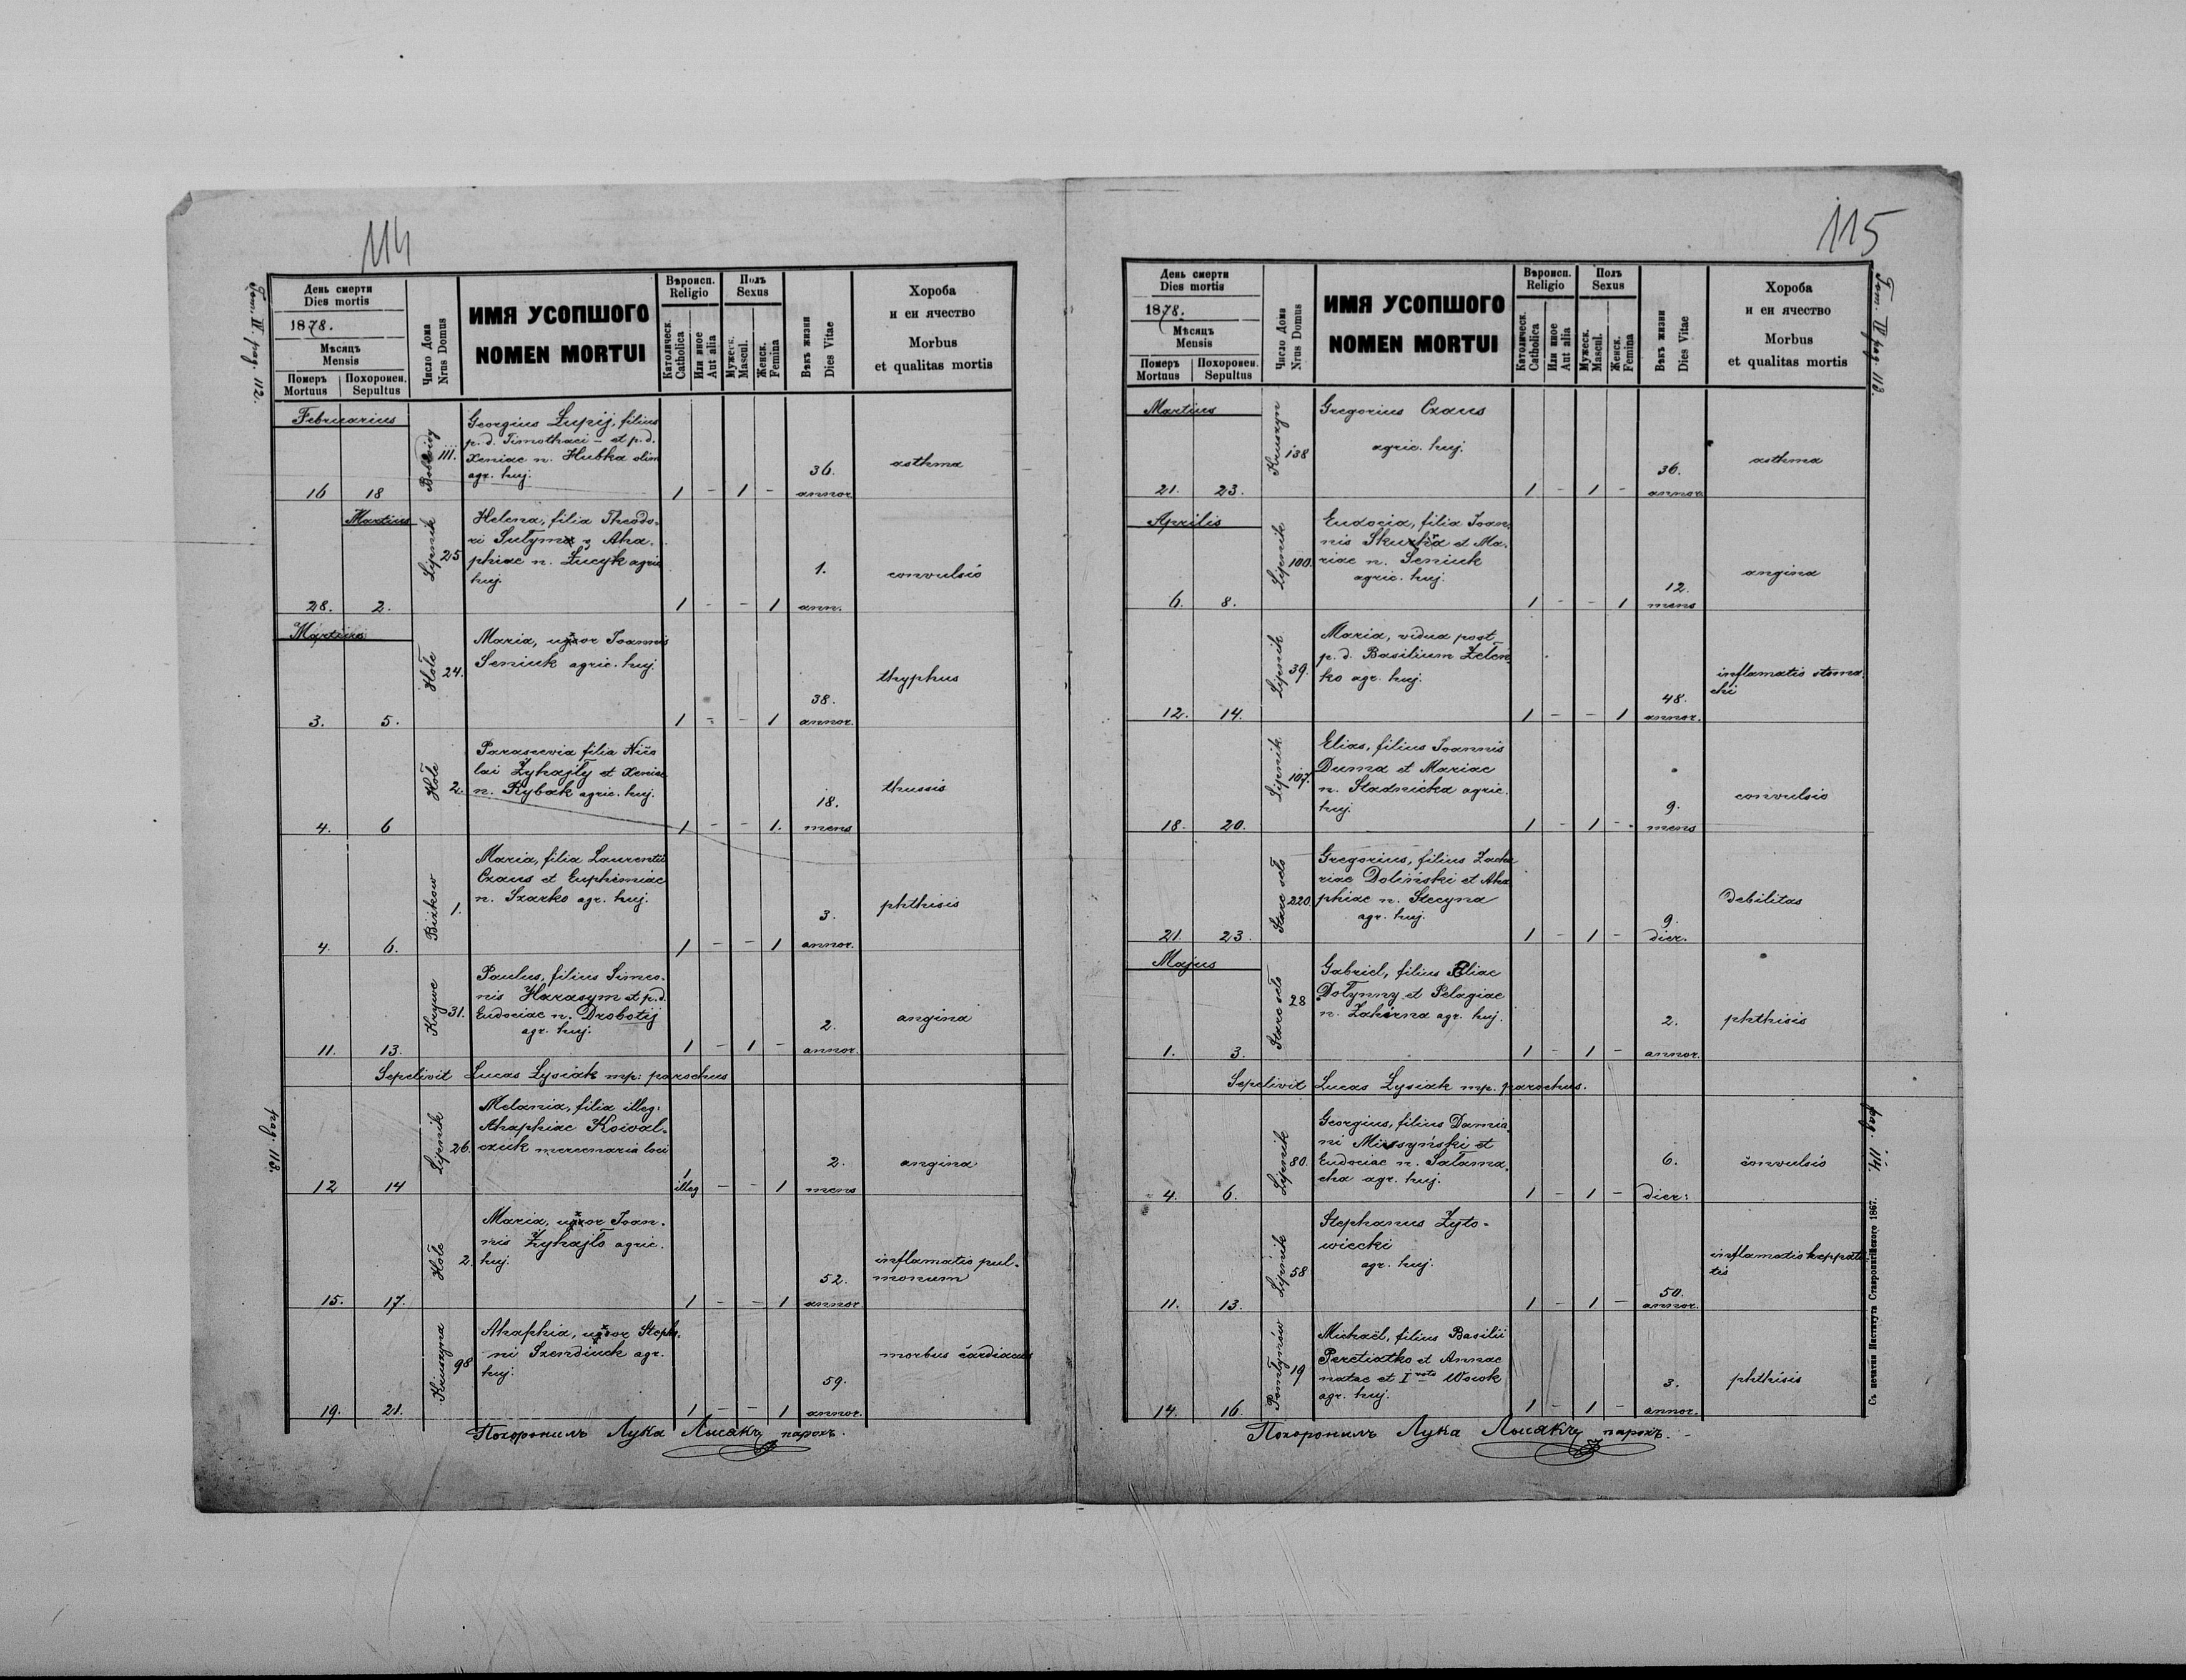 114
Tom. IV. pag. 112.
День смерти
Dies mortis
1878.
Мѣсяць
Mensis
Померъ Похоронен.
Mortuus Sepultus
Число Дома
Nrus Domus
ИМЯ УСОПШОГО
NOMEN MORTUI
Вѣроисп.
Religio
Католическ.
Catholica
Или иное
Aut alia
Полъ
Sexus
Мужеск.
Mascul.
Женск.
Femina
Вѣкъ жизни
Dies Vitae
Хороба
и еи ячество
Morbus
et qualitas mortis
Februarius
16 18
111.
Georgius Łupij, filius
p. d. Timothaei – et p. d.
Xeniae n. Hubka olim
agr. huj.
1 - 1 -
36.
annor.
asthma
Martius
28. 2.
Lipnik
25
Helena, filia Theodo-
ri Sulyma Aha-
phiae n. Łucyk agric
huj.
1 - - 1
1.
ann.
convulsio
Martius
3. 5.
Hołe
24.
Maria, uxor Joannis
Seniuk agric. huj.
1 - - 1
38.
annor.
thyphus
4. 6
Hołe
2.
Parascevia filia Nico
lai Żyhajły et Xeniae
n. Rybak agric. huj.
1 - - 1.
18.
mens
thussis
4. 6.
1.
Maria, filia Laurentii
Czaus et Euphemiae
n. Szarko agr. huj.
1 - - 1
3.
annor.
phthisis
11. 13.
Krywe
31.
Paulus, filius Simeo-
nis Harasym et p. d.
Eudociae n. Drobotij
agr. huj.
1 - 1 -
2.
annor.
angina
Sepelivit Lucas Lysiak mp: parochus
pag. 113.
12 14
Lipnik
26.
Melania, filia illeg:
Ahaphiae Kowal-
czuk mercenaria loci
1
illeg - - 1
2.
mens
angina
15. 17.
Hołe
2.
Maria, uxor Joan-
nis Żyhajło agric.
huj.
1 - - 1
52.
annor
inflamatio pul-
monum
19. 21.
Kruszyna
98
Ahaphia, uxor Stepha
ni Szendiuck agr.
huj.
1 - - 1
59.
annor.
morbus cardiacus
Похоронилъ Лука Лысякъ парохъ.
115
Tom. IV pag. 113.
День смерти
Dies mortis
1878.
Мѣсяць
Mensis
Померъ Похоронен.
Mortuus Sepultus
Число Дома
Nrus Domus
ИМЯ УСОПШОГО
NOMEN MORTUI
Вѣроисп.
Religio
Католическ.
Catholica
Или иное
Aut alia
Полъ
Sexus
Мужеск.
Mascul.
Женск.
Femina
Вѣкъ жизни
Dies Vitae
Хороба
и еи ячество
Morbus
et qualitas mortis
Martius
21. 23.
Kruszyn
138
Gregorius Czaus
agric. huj.
1 - 1 -
36.
annor.
asthma
Aprilis
6. 8.
Lipnik
100.
Eudocia, filia Joan-
nis et Ma-
riae n. Seniuk
agric. huj.
1 - - 1
12.
mens
angina
12. 14.
Lipnik
39.
Maria, vidua post
p. d. Basilium Zelen
ko agr. huj.
1 - - 1
48.
annor.
inflamatio stoma
chi
18. 20.
Lipnik
107.
Elias, filius Joannis
Duma et Mariae
n. Stadnicka agric.
huj.
1 - 1 -
9.
mens
convulsio
21. 23.
Stare seło
220
Gregorius, filius Zacha
riae Doliński et Aha
phiae n. Stecyna
agr. huj.
1 - 1 -
9.
dier.
Debilitas
Majus
1. 3.
Stare seło
28
Gabriel, filius Eliae
Dołynny et Pelagiae
n. Zahirna agr. huj.
1 - 1 -
2.
annor.
phthisis
Sepelivit Lucas Lysiak mp. parochus.
pag. 114.
4. 6.
Lipnik
80.
Georgius, filius Damia
ni et
Eudociae n. Sałama-
cha agr. huj.
1 - 1 -
6.
dier:
convulsio
11. 13.
Lipnik
58
Stephanus Żyto-
wiecki
agr. huj.
1 - 1 -
50.
annor.
inflamatio heppati
tis
14. 16.
19
Michaël, filius Basilii
Peretiatko et Annae
natae et I voto Wowk
agr. huj.
1 - 1 -
3.
annor.
phthisis
Похоронилъ Лука Лысякъ парохъ.
Съ печатни Института Ставропигійского 1867.